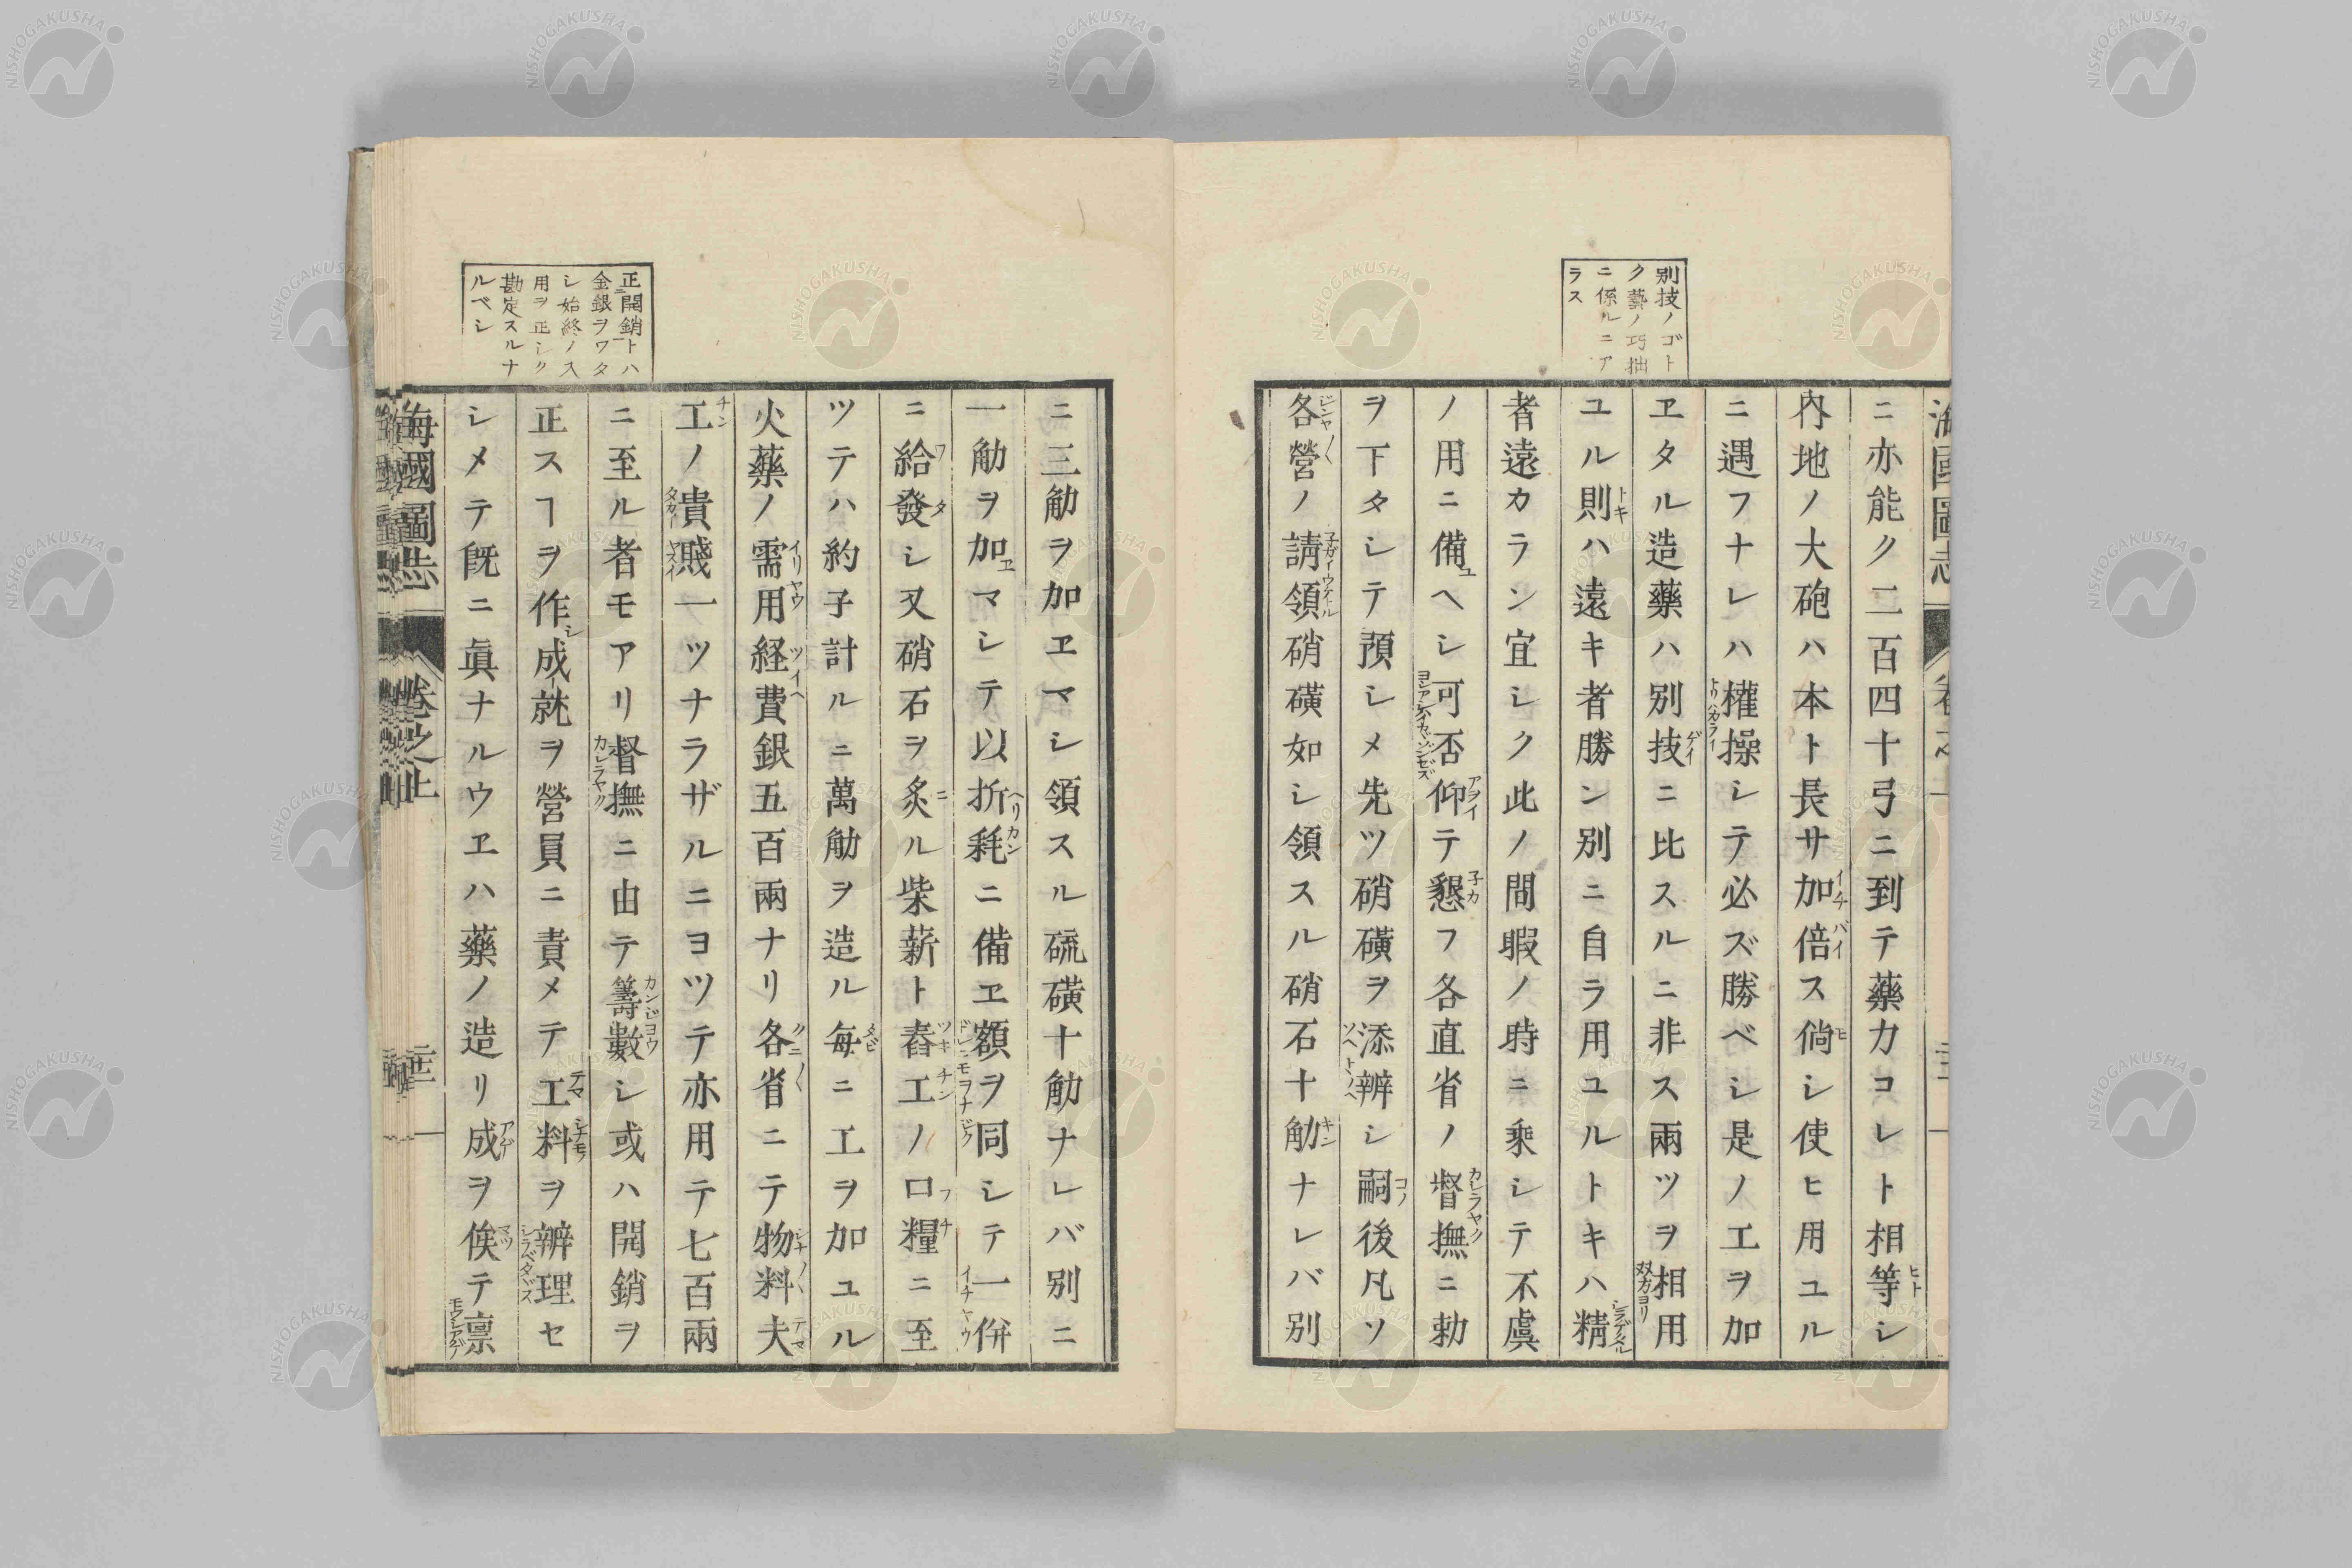 別技ノゴト
ク藝ノ巧拙
ニ係ルニア
ラス
ニ亦能ク二百四十弓ニ到テ藥力コレト相等シ
内地ノ大砲ハ本ト長サ加倍ス倘シ使ヒ用ユル
ニ遇フナレハ權操シテ必ズ勝ベシ是ノ工ヲ加
ヱタル造藥ハ別技ニ比スルニ非ス兩ツヲ相用
ユル則ハ遠キ者勝ン別ニ自ラ用ユルトキハ精
者遠カラン宜シク此ノ間暇ノ時ニ乗シテ不虞
ノ用ニ備ヘシ可否仰テ懇フ各直省ノ督撫ニ勅
ヲ下タシテ預シメ先ツ硝磺ヲ添辨シ嗣後凡ソ
各營ノ請領硝磺如シ領スル硝石十觔ナレバ別
正開銷トハ
金銀ヲワタ
シ始終ノ入
用ヲ正シク
勘定スルナ
ルベシ
ニ三觔ヲ加ヱマシ領スル硫磺十觔ナレバ別ニ
一觔ヲ加マシテ以折耗ニ備ヱ額ヲ同シテ一併
ニ給發シ又硝石ヲ炙ル柴薪ト舂工ノ口糧ニ至
ツテハ約子計ルニ萬觔ヲ造ル毎ニ工ヲ加ユル
火藥ノ需用経費銀五百兩ナリ各省ニテ物料夫
工ノ貴賤一ツナラザルニヨツテ亦用テ七百兩
ニ至ル者モアリ督撫ニ由テ籌數シ或ハ開銷ヲ
正スヿヲ作成就ヲ營員ニ責メテ工料ヲ辨理セ
シメテ既ニ眞ナルウヱハ藥ノ造リ成ヲ俟テ禀
海國圖志
卷之上
NISHOGAKUSHA